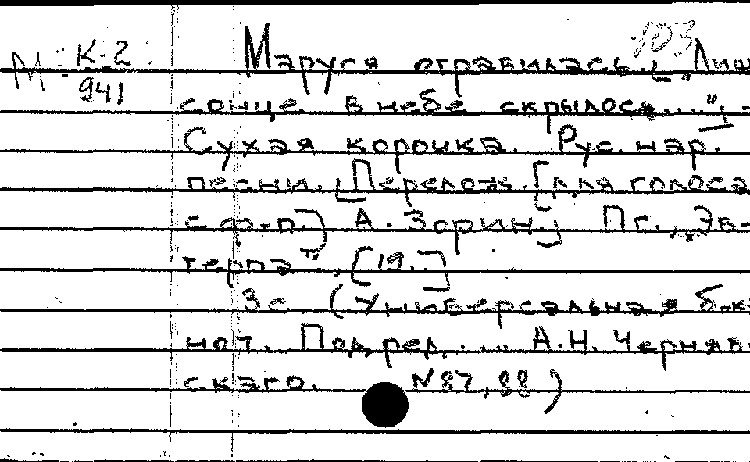 103
М К-2 Маруся отравилась. [„Лиш
941 сонце в небе скрылося...“] -
Сухая корочка. Рус. нар.
песни. [Перелож. [для голоса
с ф-п.] А. Зорин.] Пг., „Эв-
терпа“, [19..]
3с. (Универсальная б-ка
нот. Под ред. ... А.Н. Черняв-
ского. №87,88)